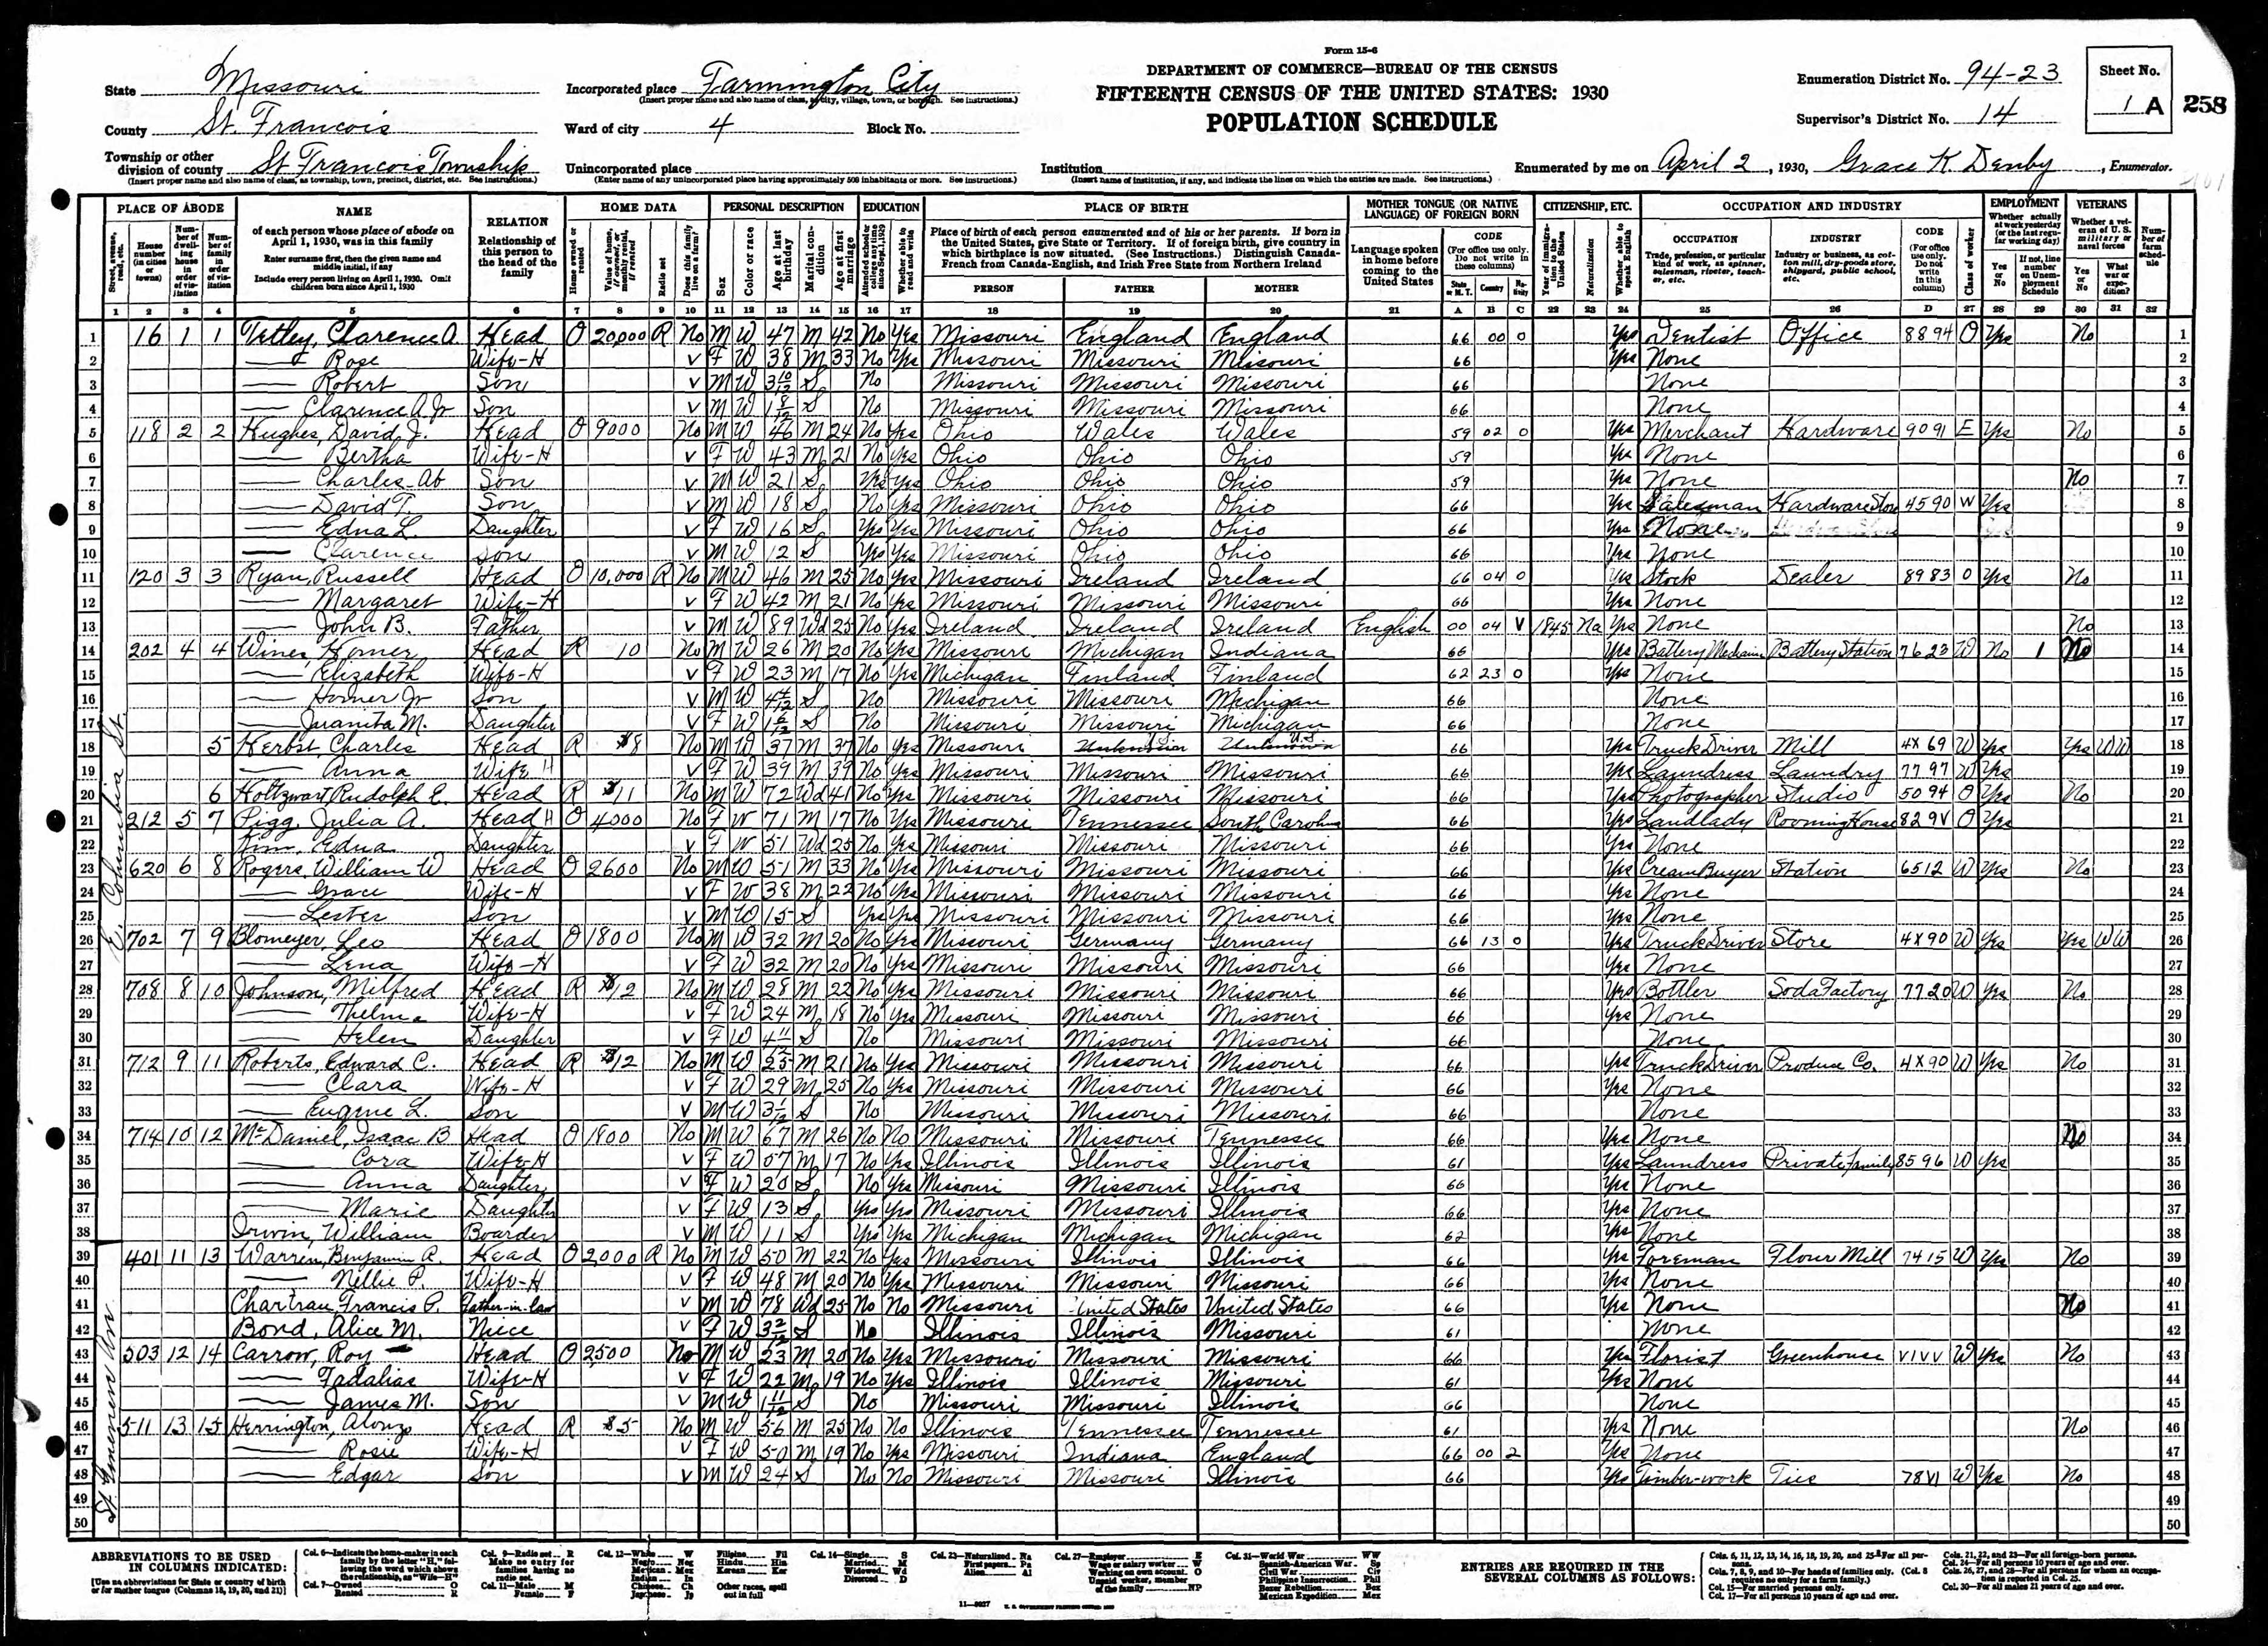 Form 15-6
DEPARTMENT OF COMMERCE—BUREAU OF THE CENSUS
FIFTEENTH CENSUS OF THE UNITED STATES: 1930
POPULATION SCHEDULE
State Missouri
County St. Francois
Township or other division of county St Francois Township
(Insert proper name and also name of class, as township, town, precinct, district, etc. See instructions.)
Incorporated place Farmington City
(Insert proper name and also name of class, as city, village, town, or borough. See instructions.)
Ward of city 4 Block No.
Unincorporated place
(Enter name of any unincorporated place having approximately 500 inhabitants or more. See instructions.)
Institution
(Insert name of institution, if any, and indicate the lines on which the entries are made. See instructions.)
Enumeration District No. 94-23
Supervisor's District No. 14
Sheet No.
1 A
258
Enumerated by me on April 2, 1930, Grace K. Denby, Enumerator.
PLACE OF ABODE NAME RELATION HOME DATA PERSONAL DESCRIPTION EDUCATION PLACE OF BIRTH MOTHER TONGUE (OR NATIVE LANGUAGE) OF FOREIGN BORN CITIZENSHIP, ETC. OCCUPATION AND INDUSTRY EMPLOYMENT VETERANS
PERSON FATHER MOTHER
1 2 3 4 5 6 7 8 9 10 11 12 13 14 15 16 17 18 19 20 21 A B C 22 23 24 25 26 D 27 28 29 30 31 32
E. Columbia St.
1 16 1 1 Tetley, Clarence A. Head O 20,000 R No M W 47 M 42 No Yes Missouri England England 66 00 0 Yes Dentist Office 8894 O Yes No 1
2 — Rose Wife-H V F W 38 M 33 No Yes Missouri Missouri Missouri 66 Yes None 2
3 — Robert Son V M W 3 10/12 S No Missouri Missouri Missouri 66 None 3
4 — Clarence A. Jr Son V M W 1 8/12 S No Missouri Missouri Missouri 66 None 4
5 118 2 2 Hughes, David J. Head O 9000 No M W 46 M 24 No Yes Ohio Wales Wales 59 02 0 Yes Merchant Hardware 9091 E Yes No 5
6 — Bertha Wife-H V F W 43 M 21 No Yes Ohio Ohio Ohio 59 Yes None 6
7 — Charles Son V M W 21 S Yes Yes Ohio Ohio Ohio 59 Yes None No 7
8 — David T. Son V M W 18 S No Yes Missouri Ohio Ohio 66 Yes Salesman Hardware Store 4590 W Yes 8
9 — Edna L. Daughter V F W 16 S Yes Yes Missouri Ohio Ohio 66 Yes None 9
10 — Clarence Son V M W 12 S Yes Yes Missouri Ohio Ohio 66 Yes None 10
11 120 3 3 Ryan, Russell Head O 10,000 R No M W 46 M 25 No Yes Missouri Ireland Ireland 66 04 0 Yes Stock Dealer 8983 O Yes No 11
12 — Margaret Wife-H V F W 42 M 21 No Yes Missouri Missouri Missouri 66 Yes None 12
13 — John B. Father V M W 89 Wd 25 No Yes Ireland Ireland Ireland English 00 04 V 1845 Na Yes None No 13
14 202 4 4 Wines Homer Head R 10 No M W 26 M 20 No Yes Missouri Michigan Indiana 66 Yes Battery Mechanic Battery Station 7623 W No 1 No 14
15 — Elizabeth Wife-H V F W 23 M 17 No Yes Michigan Finland Finland 62 23 0 Yes None 15
16 — Homer Jr Son V M W 4 4/12 S No Missouri Missouri Michigan 66 None 16
17 — Juanita M. Daughter V F W 1 6/12 S No Missouri Missouri Michigan 66 None 17
18 5 Herbst, Charles Head R $8 No M W 37 M 37 No Yes Missouri Unknown Unknown 66 Yes Truck Driver Mill 4X69 W Yes Yes WW 18
19 — Anna Wife H V F W 39 M 39 No Yes Missouri Missouri Missouri 66 Yes Laundress Laundry 7797 W Yes 19
20 6 Holtzwart, Rudolph E. Head R $11 No M W 72 Wd 41 No Yes Missouri Missouri Missouri 66 Yes Photographer Studio 5094 O Yes No 20
21 212 5 7 Pigg, Julia A. Head H O 4000 No F W 71 M 17 No Yes Missouri Tennessee South Carolina 66 Yes Landlady Rooming House 829V O Yes 21
22 Edna Daughter V F W 51 Wd 25 No Yes Missouri Missouri Missouri 66 Yes None 22
23 620 6 8 Rogers, William W Head O 2600 No M W 51 M 33 No Yes Missouri Missouri Missouri 66 Yes Cream Buyer Station 6512 W Yes No 23
24 — Grace Wife-H V F W 38 M 22 No Yes Missouri Missouri Missouri 66 Yes None 24
25 — Lester Son V M W 15 S Yes Yes Missouri Missouri Missouri 66 Yes None 25
26 702 7 9 Blomeyer, Leo Head O 1800 No M W 32 M 20 No Yes Missouri Germany Germany 66 13 0 Yes Truck Driver Store 4X90 W Yes Yes WW 26
27 — Lena Wife-H V F W 32 M 20 No Yes Missouri Missouri Missouri 66 Yes None 27
28 708 8 10 Johnson, Milfred Head R $12 No M W 28 M 22 No Yes Missouri Missouri Missouri 66 Yes Bottler Soda Factory 7720 W Yes No 28
29 — Thelma Wife-H V F W 24 M 18 No Yes Missouri Missouri Missouri 66 Yes None 29
30 — Helen Daughter V F W 4 S No Missouri Missouri Missouri 66 None 30
31 712 9 11 Roberts, Edward C. Head R $12 No M W 25 M 21 No Yes Missouri Missouri Missouri 66 Yes Truck Driver Produce Co. 4X90 W Yes No 31
32 — Clara Wife-H V F W 29 M 25 No Yes Missouri Missouri Missouri 66 Yes None 32
33 — Eugene L. Son V M W 3 1/12 S No Missouri Missouri Missouri 66 None 33
34 714 10 12 McDaniel, Isaac B Head O 1800 No M W 67 M 26 No No Missouri Missouri Tennessee 66 Yes None No 34
35 — Cora Wife-H V F W 57 M 17 No Yes Illinois Illinois Illinois 61 Yes Laundress Private Family 8596 W Yes 35
36 — Anna Daughter V F W 20 S No Yes Missouri Missouri Illinois 66 Yes None 36
37 — Marie Daughter V F W 13 S Yes Yes Missouri Missouri Illinois 66 Yes None 37
38 Irwin, William Boarder V M W 11 S Yes Yes Michigan Michigan Michigan 62 Yes None 38
39 401 11 13 Warren, Benjamin R. Head O 2000 R No M W 50 M 22 No Yes Missouri Illinois Illinois 66 Yes Foreman Flour Mill 7415 W Yes No 39
40 — Nellie P. Wife-H V F W 48 M 20 No Yes Missouri Missouri Missouri 66 Yes None 40
41 Chartrau, Francis P. Father-in-law V M W 78 Wd 25 No No Missouri United States United States 66 Yes None No 41
42 Bond, Alice M. Niece V F W 3 2/12 S No Illinois Illinois Missouri 61 None 42
43 503 12 14 Carrow, Roy Head O 2,500 No M W 23 M 20 No Yes Missouri Missouri Missouri 66 Yes Florist Greenhouse V1VV W Yes No 43
44 — Fadalias Wife-H V F W 22 M 19 No Yes Illinois Illinois Missouri 61 Yes None 44
45 — James M. Son V M W 1 11/12 S No Missouri Missouri Illinois 66 None 45
46 511 13 15 Herrington, Alonzo Head R $5 No M W 56 M 25 No No Illinois Tennessee Tennessee 61 Yes None No 46
47 — Rosie Wife-H V F W 50 M 19 No Yes Missouri Indiana England 66 00 2 Yes None 47
48 — Edgar Son V M W 24 S No No Missouri Missouri Illinois 66 Yes Timber-work Ties 78V1 W Yes No 48
49 49
50 50
ABBREVIATIONS TO BE USED IN COLUMNS INDICATED:
ENTRIES ARE REQUIRED IN THE SEVERAL COLUMNS AS FOLLOWS: